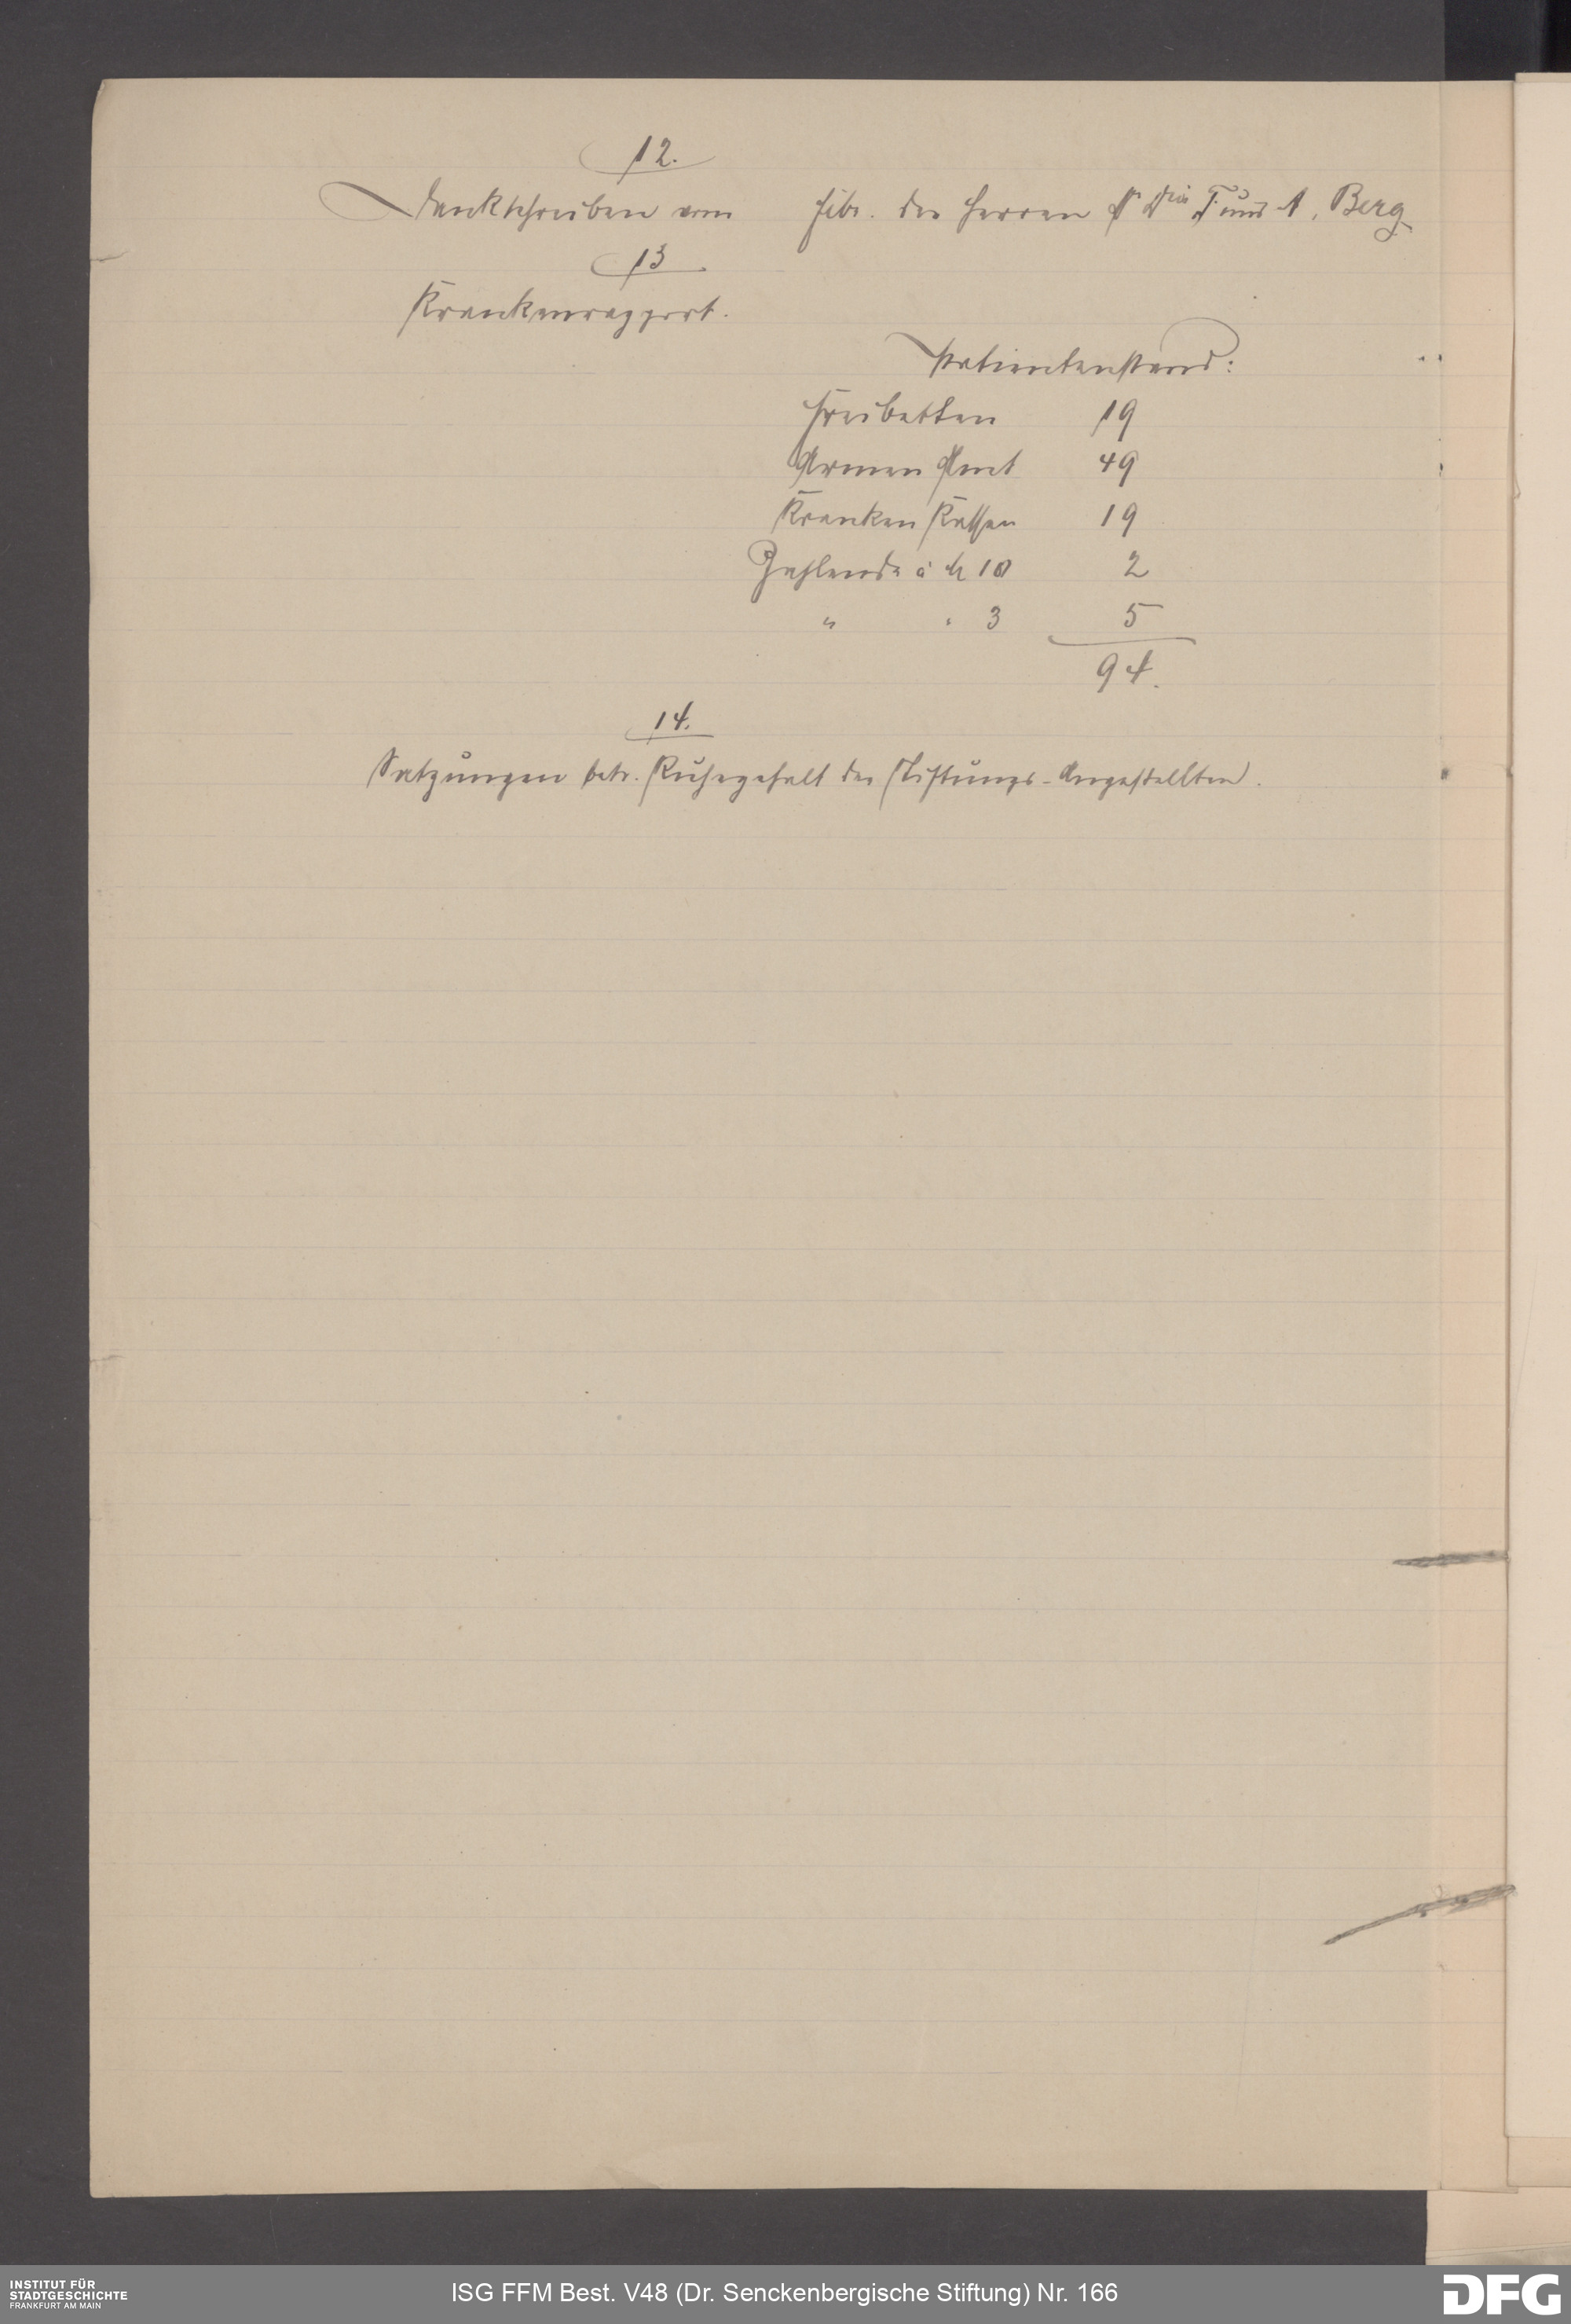 12.
Dankschreiben vom Febr. der Herren F. und A. Berg
13
Krankenrapport.
Patientenstand:
Freibetten 19
Armen Amt 49
Kranken Kassen 19
Zahlende à M 10 2
" " 3 5
94.
14.
Satzungen betr. Ruhegehalt der Stiftungs-Angestellten.
INSTITUT FÜR
STADTGESCHICHTE
FRANKFURT AM MAIN
ISG FFM Best. V48 (Dr. Senckenbergische Stiftung) Nr. 166
DFG